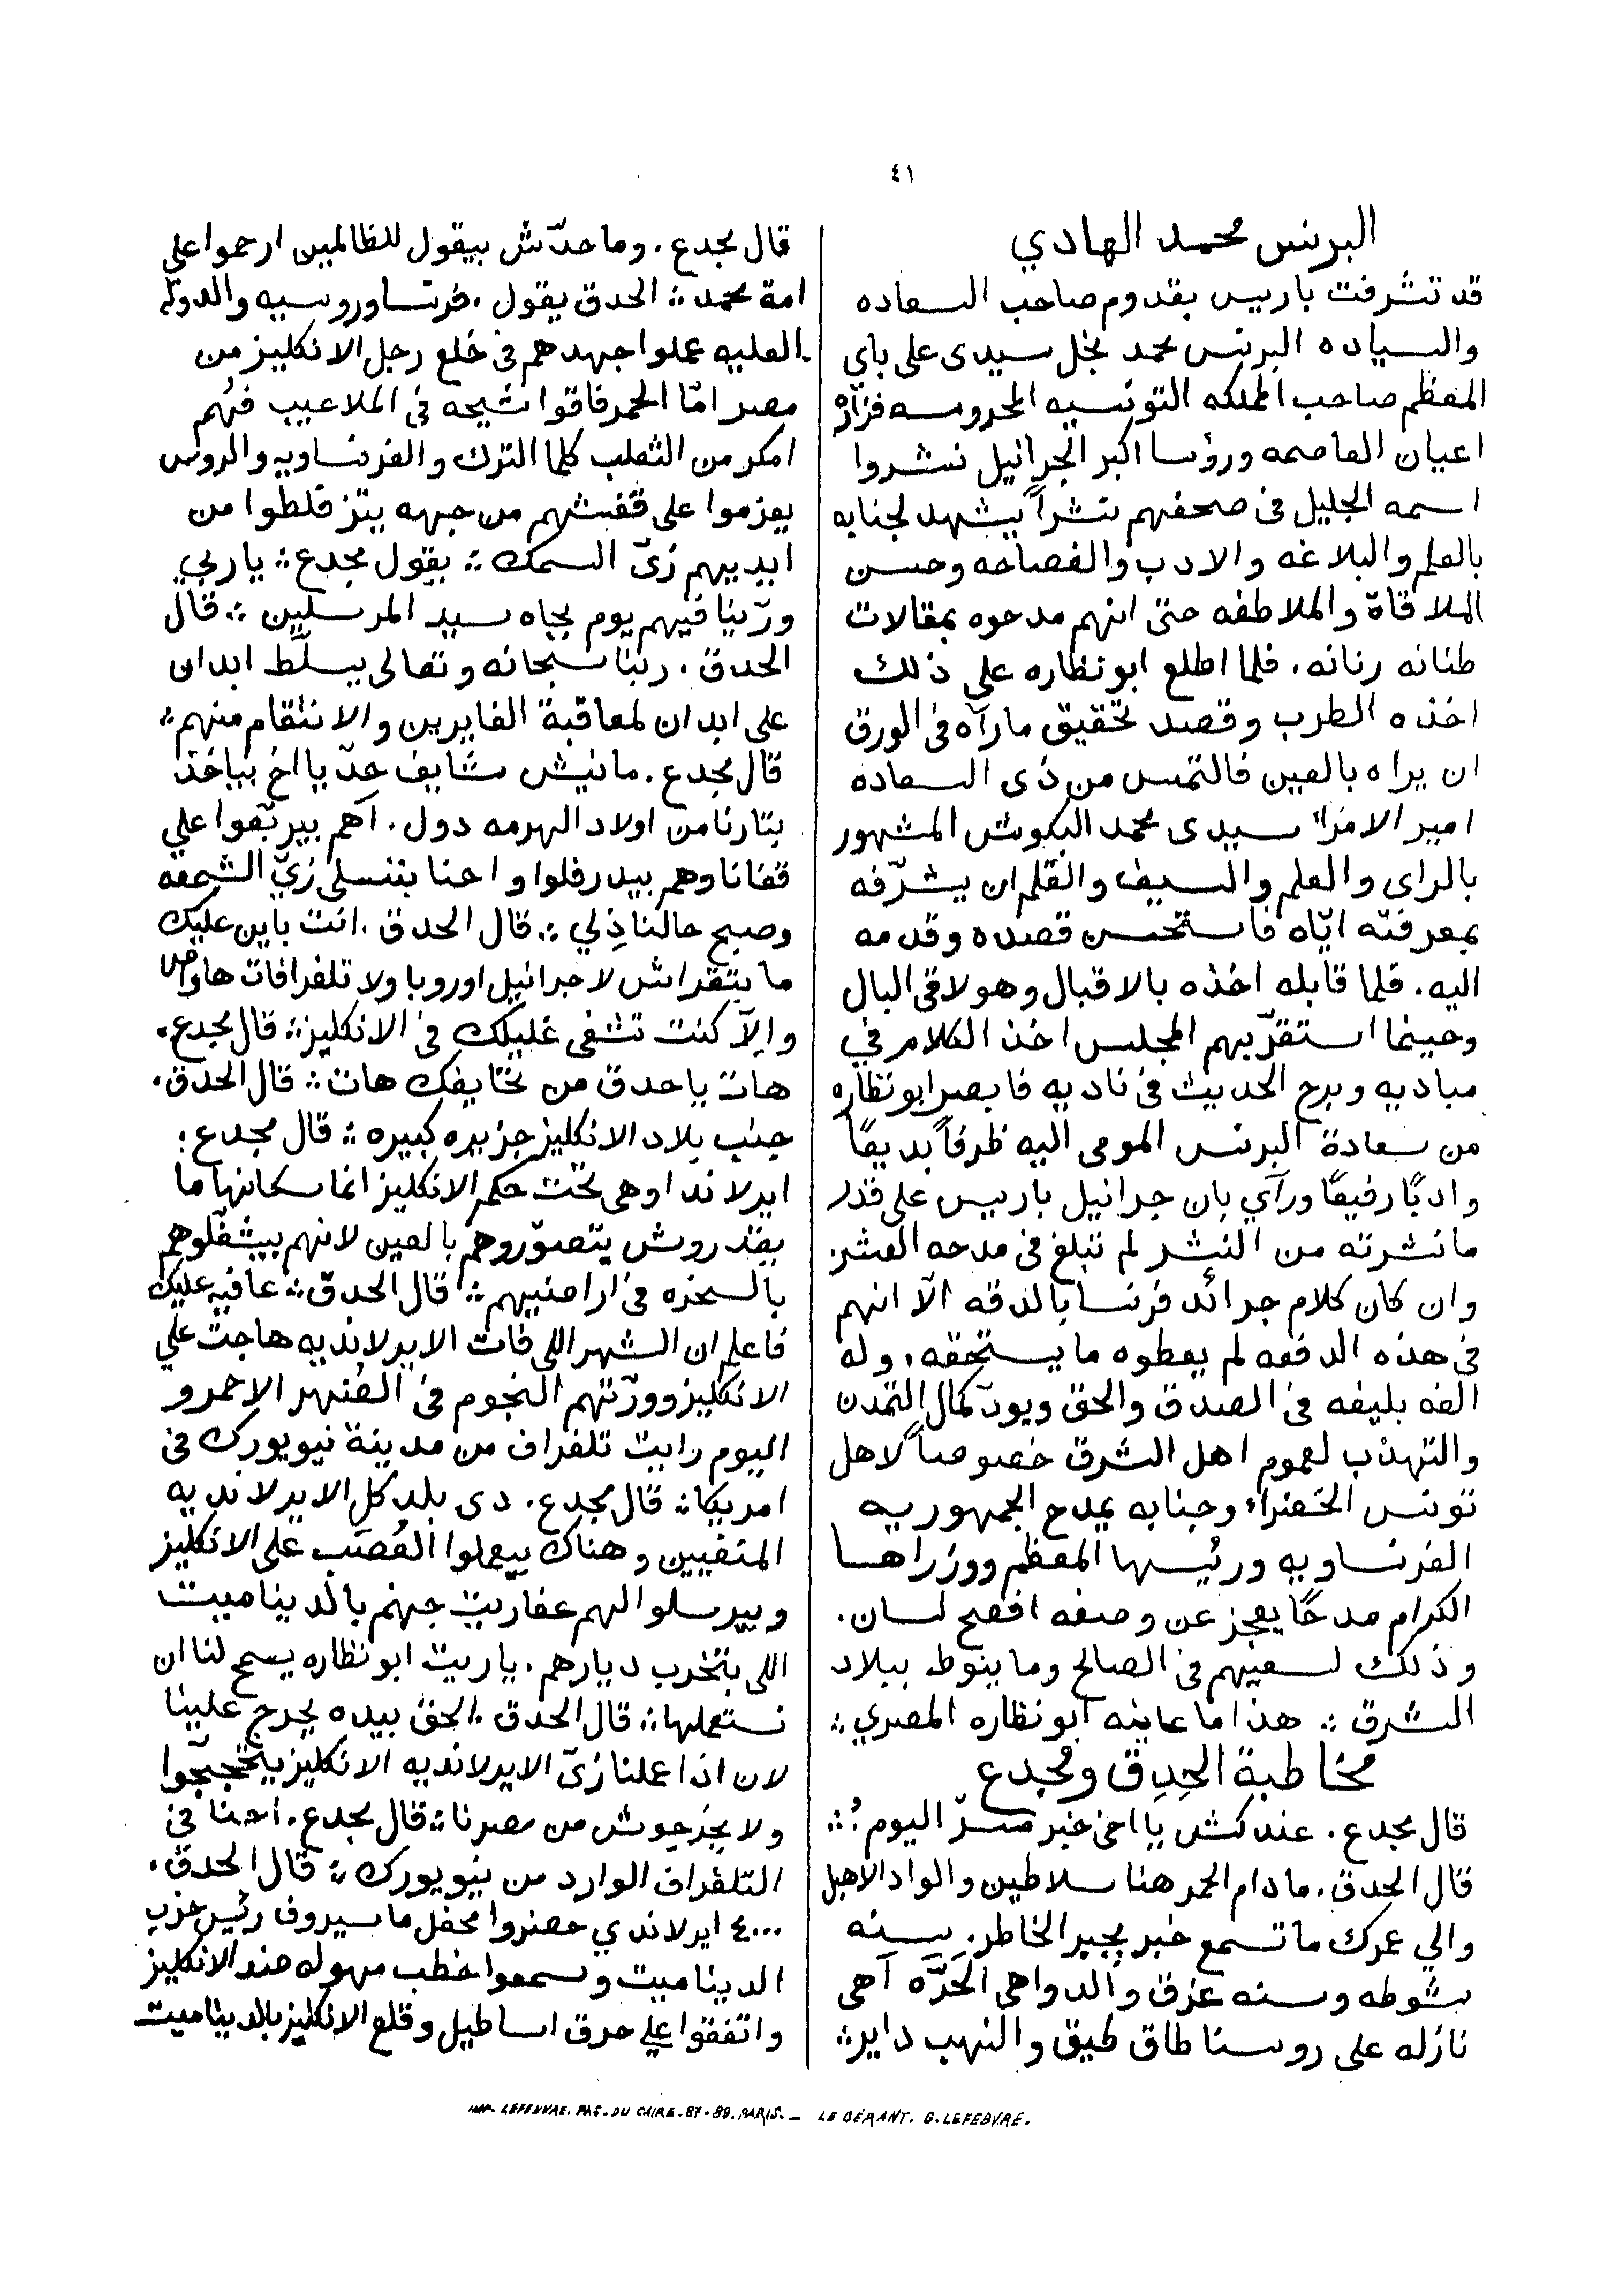 ٤١
البرنس محمد الهادي
قد تشرفت باريس بقدوم صاحب السعاده
والسياده البرنس محمد نجل سيدى على باي
المعظم صاحب المملكه التونسيه المحروسه فزاره
اعيان العاصمه ورؤسا اكبر الجرانيل نشروا
اسمه الجليل فى صحفهم نشراً يشهد لجنابه
بالعلم والبلاغه والادب والفصاحه وحسن
الملاقاة والملاطفه حتى انهم مدحوه بمقالات
طنانه رنانه. فلما اطلع ابونظاره على ذلك
اخذه الطرب وقصد تحقيق ما رآه فى الورق
ان يراه بالعين فالتمس من ذى السعاده
امير الامرا سيدى محمد البكوش المشهور
بالراى والعلم والسيف والقلم ان يشرّفه
بمعرفته ايّاه فاستحسن قصده وقدمه
اليه. فلما قابله اخذه بالاقبال وهو لاقى البال
وحينما استقرّ بهم المجلس اخذ الكلام في
مباديه وبرح الحديث فى ناديه فابصر ابونظاره
من سعادة البرنس المومى اليه ظرفاً بديعًا
وادبًا رفيعًا ورآي بان جرانيل باريس على قدر
ما نشرته من النشر لم تبلغ فى مدحه العشر.
وان كان كلام جرائد فرنسا بالدقه الّا انهم
فى هذه الدفعه لم يعطوه ما يستحقه، وله
الفه بليغه فى الصدق والحق ويودّ كمال التمدن
والتهذب لعموم اهل الشرق خصوصاً لاهل
تونس الخضراء وجنابه يمدح الجمهوريه
الفرنساويه ورئيسها المعظم ووزراها
الكرام مدحًا يعجز عن وصفه افصح لسان.
وذلك لسعيهم فى الصالح وما ينوط ببلاد
الشرق ∴ هذا ما عاينه ابونظاره المصري ∴
مخاطبة الحِدِق ومجدع
قال مجدع. عندكش يا اخى خبر يسرّ اليوم ؟∴
قال الحدق. ما دام الحمر هنا سلاطين والواد الاهبل
والي عمرك ما تسمع خبر يجبر الخاطر. سنه
شوطه وسنه غزق والدواهى الحرّه آهى
نازله على روسنا طاق طيق والنهب داير ∴
قال مجدع. وما حدّش بيقول للظالمين ارحموا على
امة محمد ∴ الحدق يقول. فرنسا وروسيه والدوله
العليه عملوا جهدهم فى خلع رجل الانكليز من
مصر امّا الحمر فاقوا شيحه فى الملاعيب فهُم
امكر من الثعلب كلما الترك والفرنساويه والروس
يعزموا على قفشهم من جهه يتزفلطوا من
ايديهم زىّ السمك ∴ يقول مجدع ∴ ياربي
ورّينا فيهم يوم بجاه سيد المرسلين ∴ قال
الحدق. ربنا سبحانه وتعالى يسلّط ابدان
على ابدان لمعاقبة الغايرين والانتقام منهم ∴
قال مجدع. مانيش شايف حدّ يا اخ بياخذ
بتارنا من اولاد الهرمه دول. آهم بيرتّعوا على
قفانا وهم بيدرفلوا واحنا بننسلى زيّ الشمعه
وصبح حالنا ذِلي ∴ قال الحدق. انت باين عليك
ما بتقراش لا جرانيل اوروبا ولا تلغرافات هاواص
والّا كنت تشفى غليلك فى الانكليز ∴ قال مجدع.
هات يا حدق من تخايفك هات ∴ قال الحدق.
جنب بلاد الانكليز جزيره كبيره ∴ قال مجدع :
ايرلاندا وهى تحت حكم الانكليز انما سكانها ما
يقدروش يتصوّروهم بالعين لانهم بيشغّلوهم
بالسخره فى اراضيهم ∴ قال الحدق ∴ عافيه عليك
فاعلم ان الشهر اللى فات الايرلانديه هاجت علي
الانكليز وورّتهم النجوم فى الضُهر الاحمر و
اليوم رايت تلغراف من مدينة نيويورك فى
امريكا ∴ قال مجدع. دى بلد كل الايرلانديه
المنفيين وهناك بيعملوا العُصَب على الانكليز
وبيرسلوا لهم عفاريت جهنم بالديناميت
اللى بتخرب ديارهم. ياريت ابونظاره يسمح لنا ان
نستعملها ∴ قال الحدق. الحق بيده يحرج علينا
لان اذا عملنا زىّ الايرلانديه الانكليز يتحججوا
ولا يخرجوش من مصرنا ∴ قال مجدع. احنا فى
التلغراف الوارد من نيويورك ∴ قال الحدق.
٤٠٠٠ ايرلاندي حضروا محفل ماسيروف رئيس حزب
الديناميت وسمعوا خطب مهوله ضد الانكليز
واتفقوا علي حرق اساطيل وقلع الانكليز بالديناميت
IMP. LEFEBVRE. PAS. DU CAIRE. 87-89. PARIS. — LE GÉRANT. G. LEFEBVRE.